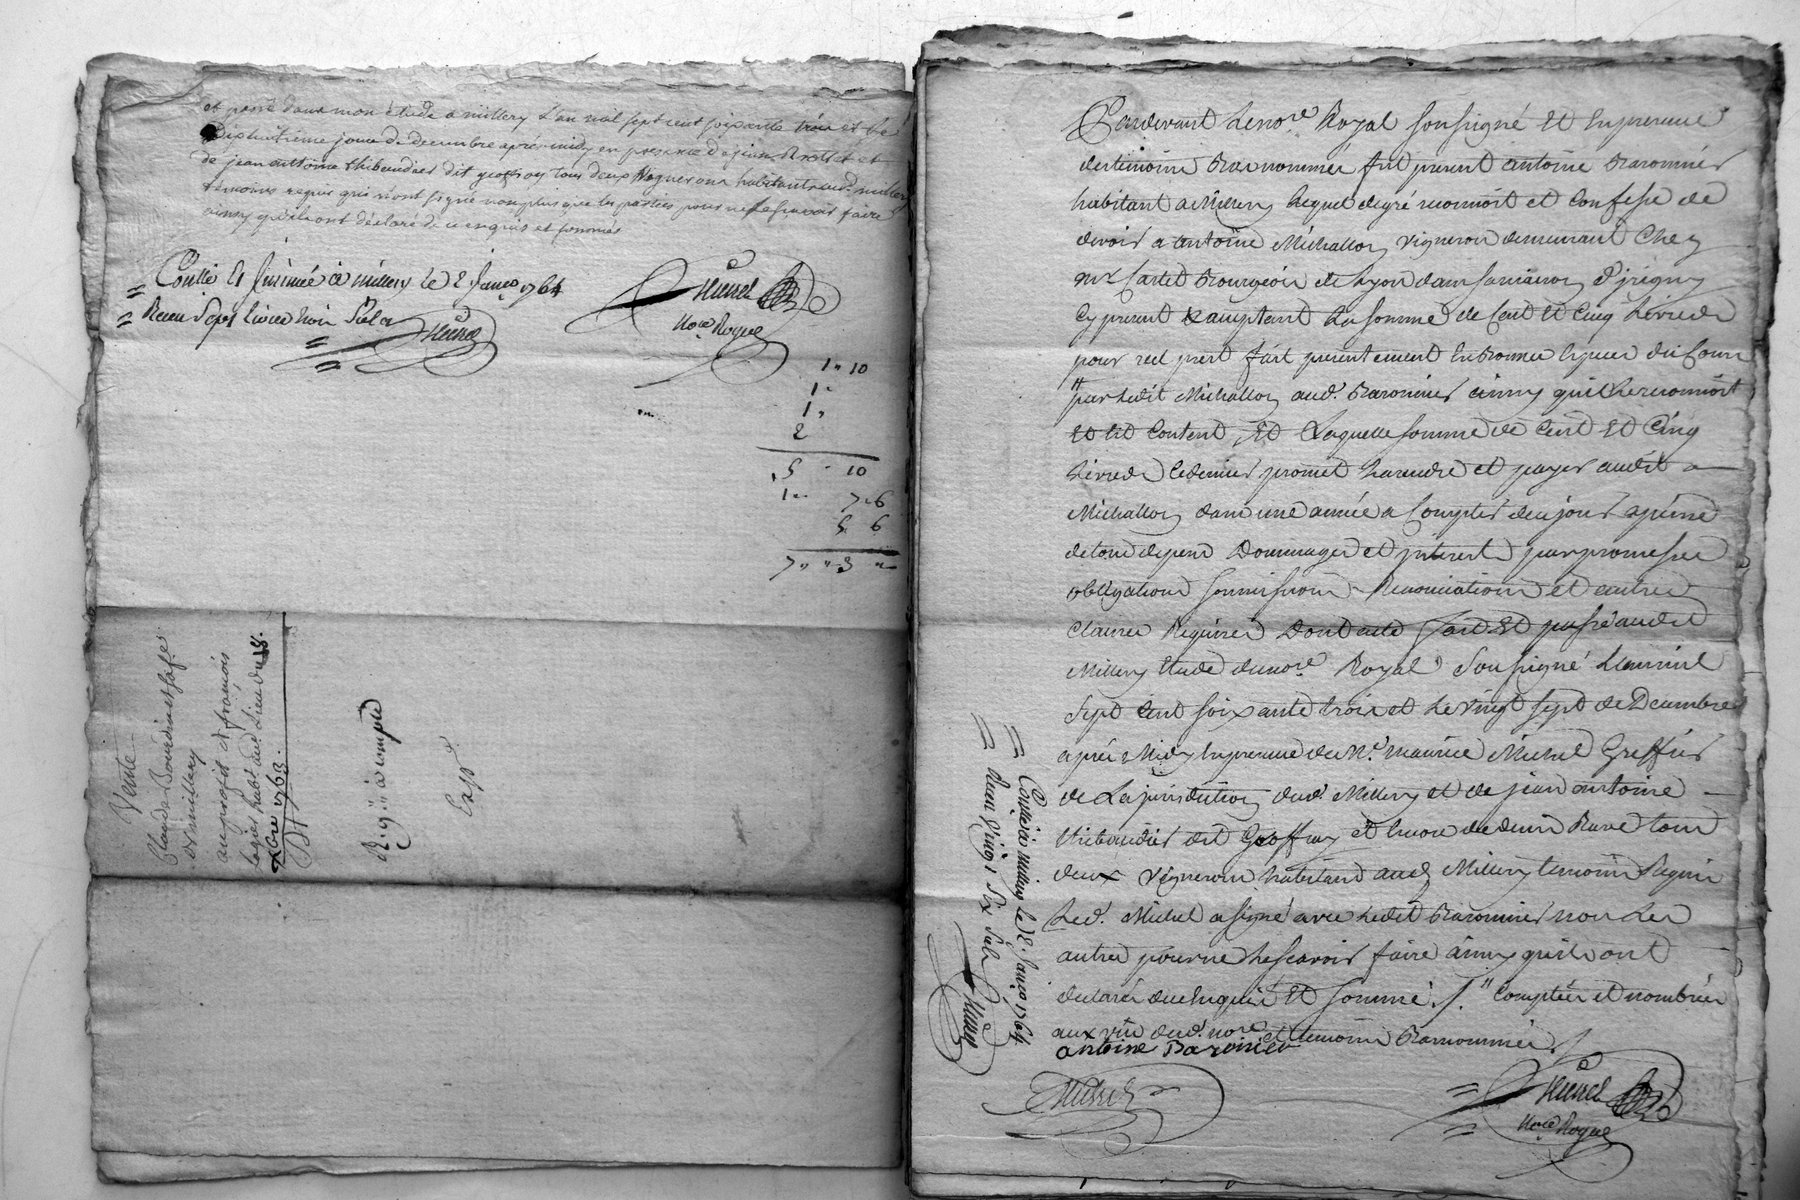 et passé dans mon étude a millery l'an mil sept cent soixante trois et le
dixhuitieme jour de decembre apres midy en presence de jean
de jean antoine thibaudier dit geoffray tous deux vignerons habitants aud. millery
temoins requis qui n'ont signé non plus que les parties pour ne le scavoir faire
ainsy qu'ils ont déclaré de ce enquis et sommés
Collé et insinué à millery le 2 janv. 1764
Receu sept livres trois sols
Nore Royal
1 " 10
1 "
1 "
2
5 " 10
1 " 7 " 6
5 6
7 " " 3 "
Vente
Claude
de millery
au profit de françois
habt. aud. lieu du 18.
Xbre 1763.
Reg. à compte
Exp.
Pardevant le nore Royal soussigné et en presence
des temoins bas nommés fut present antoine Baronnier
habitant a Millery lequel de gré reconnoit et confesse de
devoir a antoine Michallon vigneron demeurant chez
mr Bourgeois de Lyon dans sa maison d'jrigny
cy present acceptant la somme de cent et cinq livres
pour reel prest fait presentement en bonnes especes du cours
" par ledit Michallon aud. Baronnier ainsy qu'il le reconnoit
et est content et laquelle somme de cent et cinq
livres ce dernier promet la rendre et payer audit
Michallon dans une année a compter de ce jour a peine
de tous depens dommages et jnterest par promesses
obligations soumissions Renonciations et autres
clauses Requises dont acte fait et passé audit
Millery etude du nore Royal soussigné l'an mil
sept cent soixante trois et le vingt sept de Decembre
après Midy en presence de Me maurice Michel Greffier
de la jurisdiction dud. Millery et de jean antoine
thibaudier dit Geoffray et encore de denis Rave tous
deux vignerons habitans aud. Millery temoins Requis
led. Michel a signé avec ledit Baronnier non les
autres pour ne le scavoir faire ainsy qu'ils ont
declaré de ce enquis et sommé ./. " comptées et nombrées
aux vüe dud. nore et temoins bas nommés ./
antoine Baronier
Michel
Nore Royal
Collé à millery le 2 janv. 1764
Receu vingt six sols